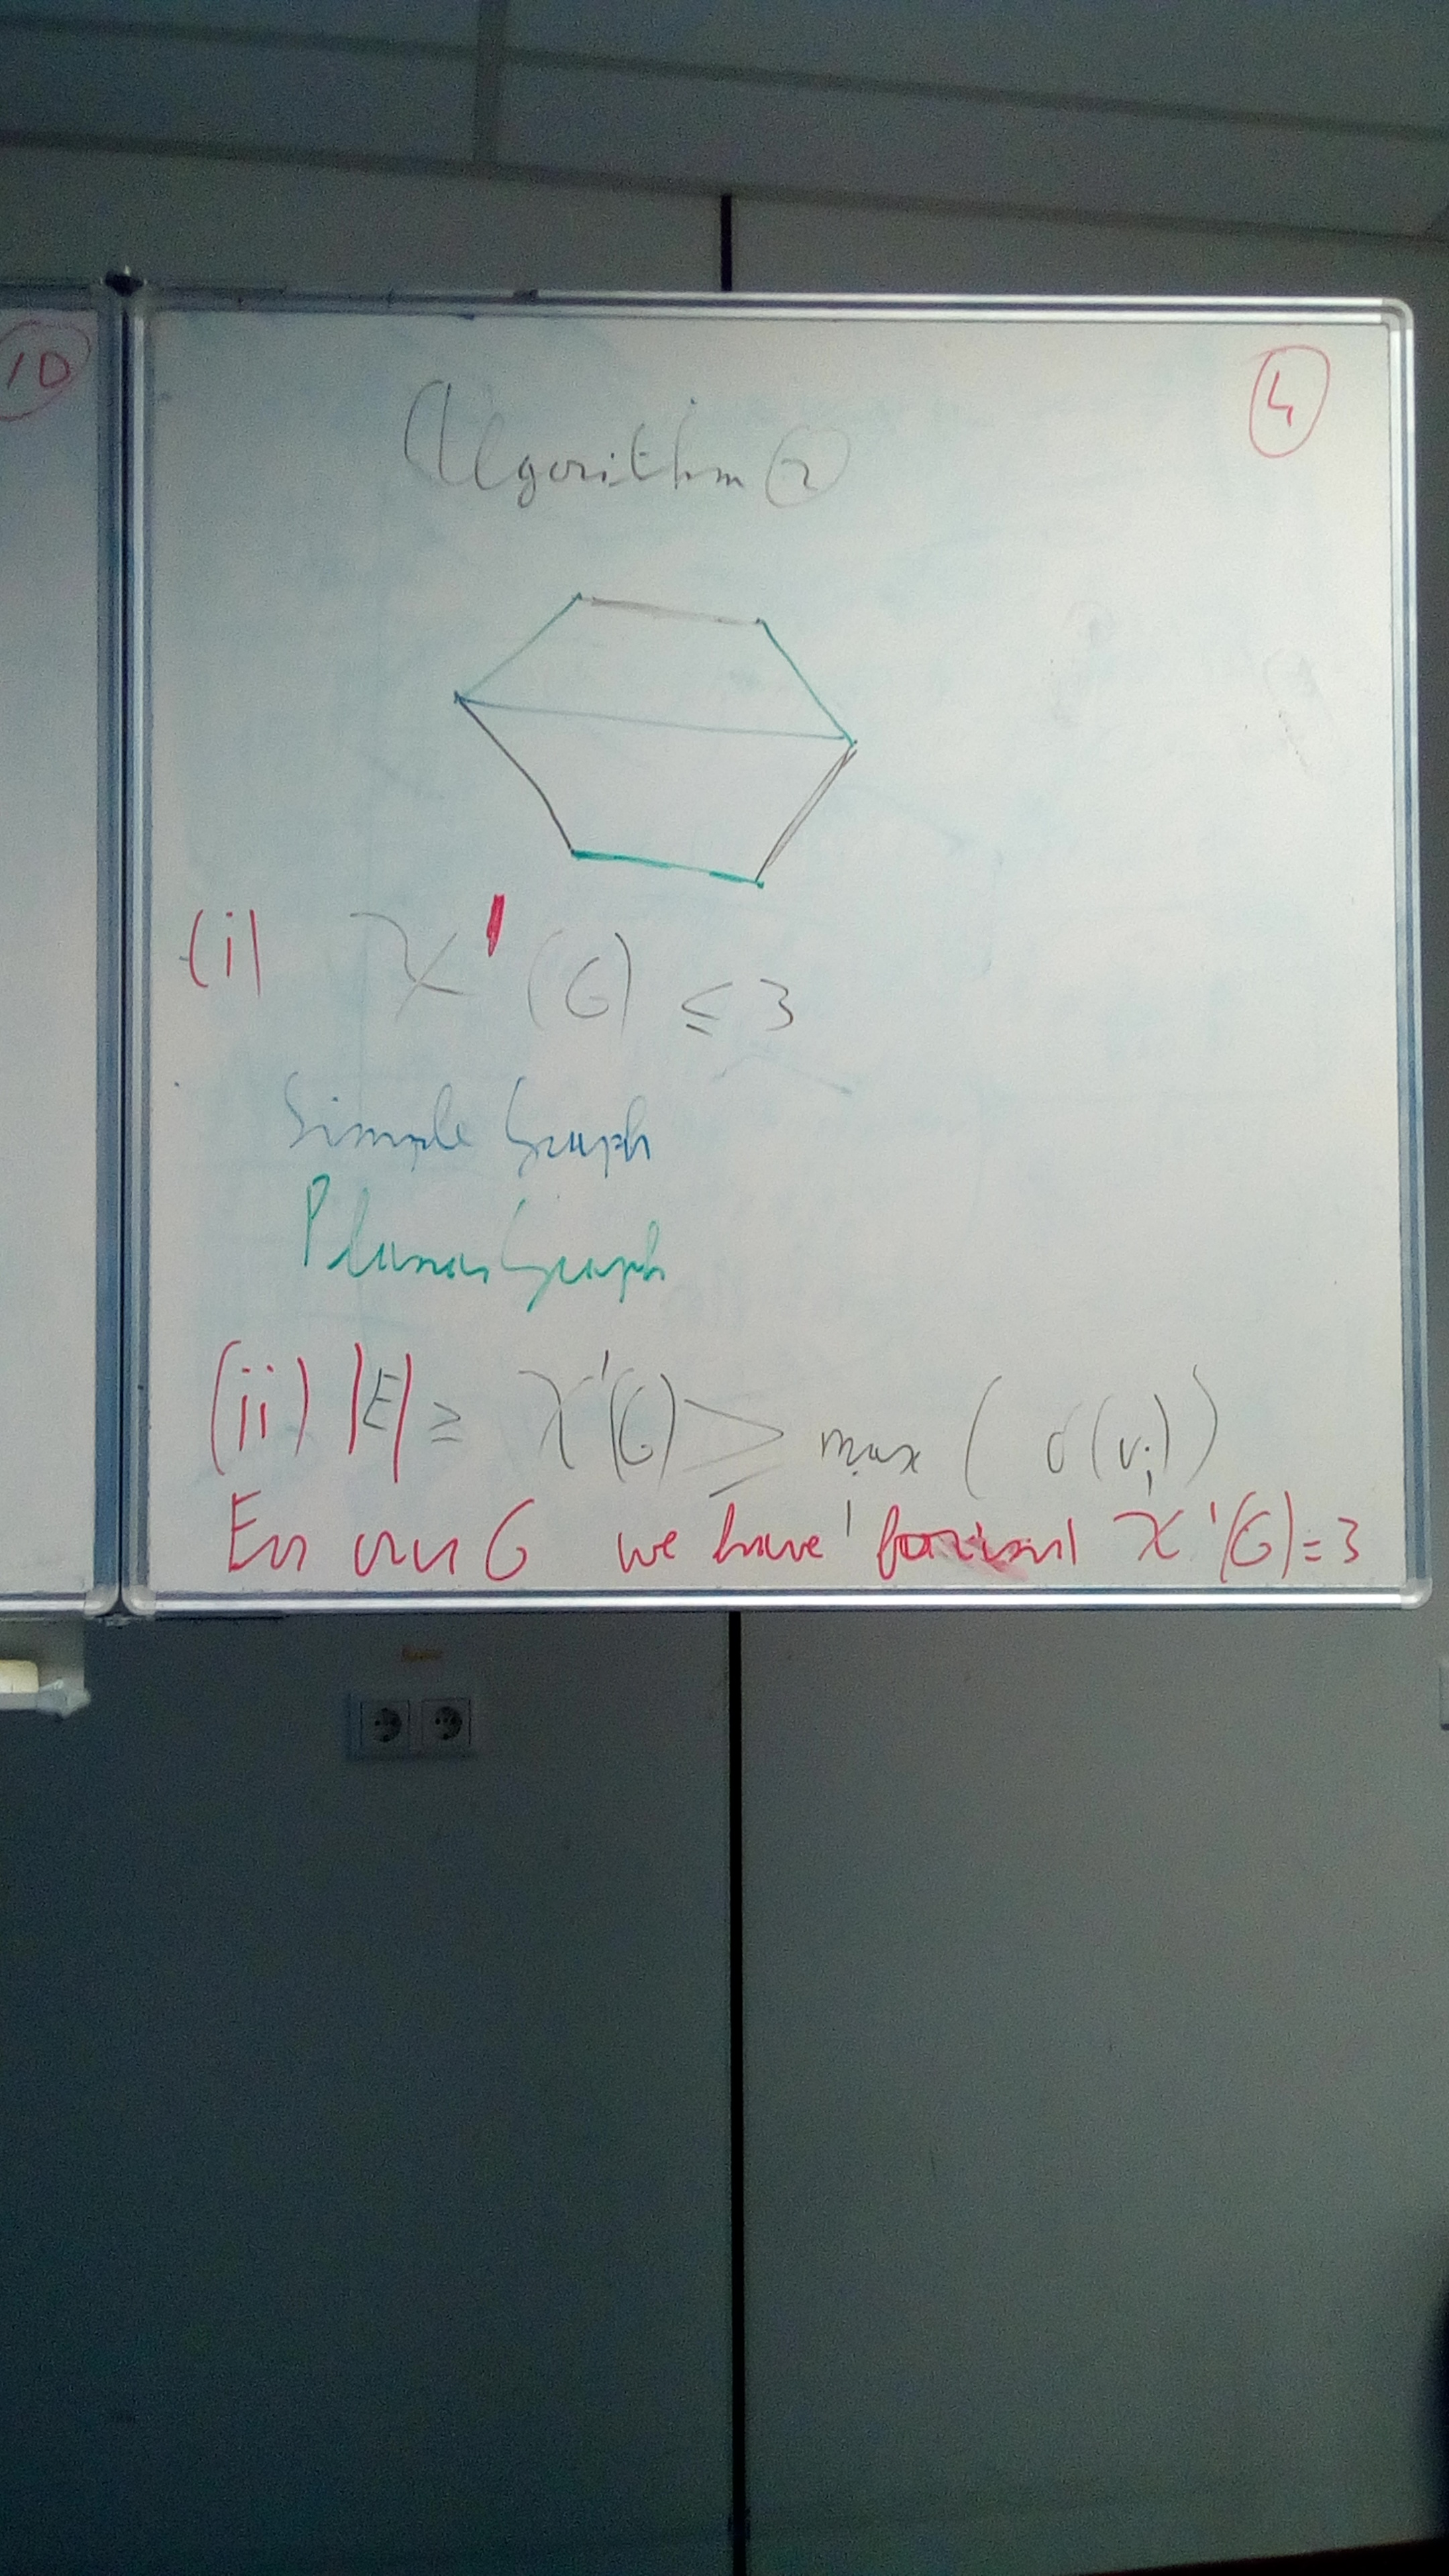 10
4
Algorithm 2
(i) χ'(G) ≤ 3
Simple Graph
Planar Graph
(ii) |E| ≥ χ'(G) ≥ max ( d(vi) )
G we have χ'(G) = 3